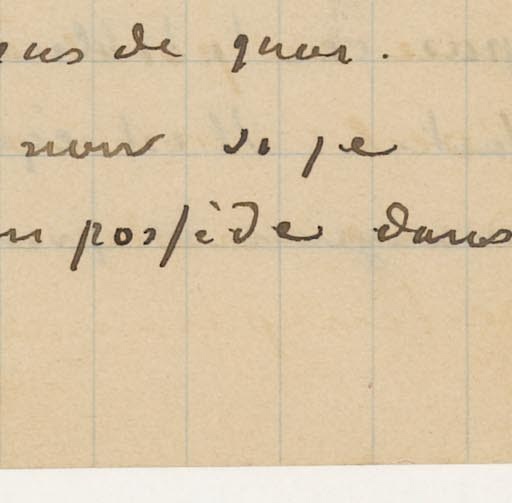 de quoi.
nous si je
possède dans